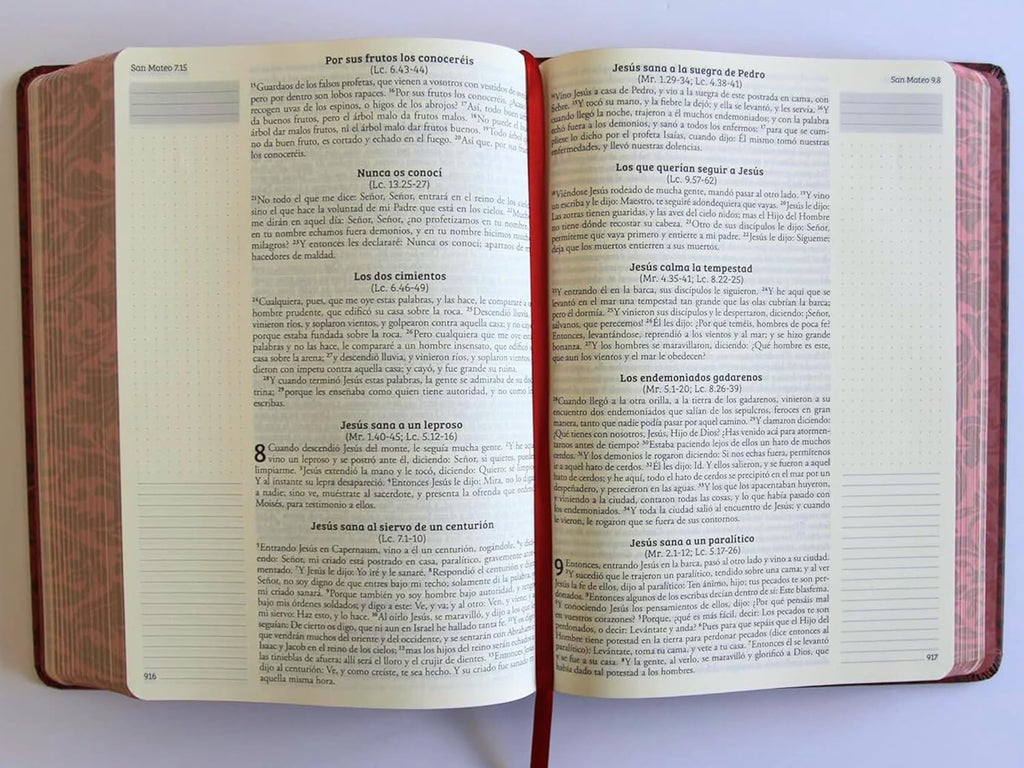 San Mateo 7.15
Por sus frutos los conoceréis
(Lc. 6.43-44)
15Guardaos de los falsos profetas, que vienen a vosotros con vestidos de
pero por dentro son lobos rapaces. 16Por sus frutos los conoceréis. ¿Acaso
recogen uvas de los espinos, o higos de los abrojos? 17Así, todo buen
da buenos frutos, pero el árbol malo da frutos malos. 18No puede el
árbol dar malos frutos, ni el árbol malo dar frutos buenos. 19Todo árbol
no da buen fruto, es cortado y echado en el fuego. 20Así que, por sus frutos
los conoceréis.
Nunca os conocí
(Lc. 13.25-27)
21No todo el que me dice: Señor, Señor, entrará en el reino de los
sino el que hace la voluntad de mi Padre que está en los cielos. 22Muchos
me dirán en aquel día: Señor, Señor, ¿no profetizamos en tu nombre,
en tu nombre echamos fuera demonios, y en tu nombre hicimos muchos
milagros? 23Y entonces les declararé: Nunca os conocí; apartaos de
hacedores de maldad.
Los dos cimientos
(Lc. 6.46-49)
24Cualquiera, pues, que me oye estas palabras, y las hace, le compararé a
hombre prudente, que edificó su casa sobre la roca. 25Descendió lluvia,
vinieron ríos, y soplaron vientos, y golpearon contra aquella casa; y no cayó,
porque estaba fundada sobre la roca. 26Pero cualquiera que me oye estas
palabras y no las hace, le compararé a un hombre insensato, que edificó
casa sobre la arena; 27y descendió lluvia, y vinieron ríos, y soplaron vientos,
dieron con ímpetu contra aquella casa; y cayó, y fue grande su ruina.
28Y cuando terminó Jesús estas palabras, la gente se admiraba de su doc-
trina; 29porque les enseñaba como quien tiene autoridad, y no como los
escribas.
Jesús sana a un leproso
(Mr. 1.40-45; Lc. 5.12-16)
8 Cuando descendió Jesús del monte, le seguía mucha gente. 2Y he aquí
vino un leproso y se postró ante él, diciendo: Señor, si quieres, puedes
limpiarme. 3Jesús extendió la mano y le tocó, diciendo: Quiero; sé limpio.
Y al instante su lepra desapareció. 4Entonces Jesús le dijo: Mira, no lo digas
a nadie; sino ve, muéstrate al sacerdote, y presenta la ofrenda que ordenó
Moisés, para testimonio a ellos.
Jesús sana al siervo de un centurión
(Lc. 7.1-10)
5Entrando Jesús en Capernaum, vino a él un centurión, rogándole, 6y dici-
endo: Señor, mi criado está postrado en casa, paralítico, gravemente ator-
mentado. 7Y Jesús le dijo: Yo iré y le sanaré. 8Respondió el centurión y dijo:
Señor, no soy digno de que entres bajo mi techo; solamente di la palabra,
mi criado sanará. 9Porque también yo soy hombre bajo autoridad, y tengo
bajo mis órdenes soldados; y digo a este: Ve, y va; y al otro: Ven, y viene; y
mi siervo: Haz esto, y lo hace. 10Al oírlo Jesús, se maravilló, y dijo a los que le
seguían: De cierto os digo, que ni aun en Israel he hallado tanta fe. 11Y os digo
que vendrán muchos del oriente y del occidente, y se sentarán con Abraham
Isaac y Jacob en el reino de los cielos; 12mas los hijos del reino serán echados
las tinieblas de afuera; allí será el lloro y el crujir de dientes. 13Entonces Jesús
dijo al centurión: Ve, y como creíste, te sea hecho. Y su criado fue sanado
aquella misma hora.
916
San Mateo 9.8
Jesús sana a la suegra de Pedro
(Mr. 1.29-34; Lc. 4.38-41)
14Vino Jesús a casa de Pedro, y vio a la suegra de este postrada en cama, con
fiebre. 15Y tocó su mano, y la fiebre la dejó; y ella se levantó, y les servía. 16Y
cuando llegó la noche, trajeron a él muchos endemoniados; y con la palabra
echó fuera a los demonios, y sanó a todos los enfermos; 17para que se cum-
pliese lo dicho por el profeta Isaías, cuando dijo: Él mismo tomó nuestras
enfermedades, y llevó nuestras dolencias.
Los que querían seguir a Jesús
(Lc. 9.57-62)
18Viéndose Jesús rodeado de mucha gente, mandó pasar al otro lado. 19Y vino
un escriba y le dijo: Maestro, te seguiré adondequiera que vayas. 20Jesús le dijo:
Las zorras tienen guaridas, y las aves del cielo nidos; mas el Hijo del Hombre
no tiene dónde recostar su cabeza. 21Otro de sus discípulos le dijo: Señor,
permíteme que vaya primero y entierre a mi padre. 22Jesús le dijo: Sígueme;
deja que los muertos entierren a sus muertos.
Jesús calma la tempestad
(Mr. 4.35-41; Lc. 8.22-25)
23Y entrando él en la barca, sus discípulos le siguieron. 24Y he aquí que se
levantó en el mar una tempestad tan grande que las olas cubrían la barca;
pero él dormía. 25Y vinieron sus discípulos y le despertaron, diciendo: ¡Señor,
sálvanos, que perecemos! 26Él les dijo: ¿Por qué teméis, hombres de poca fe?
Entonces, levantándose, reprendió a los vientos y al mar; y se hizo grande
bonanza. 27Y los hombres se maravillaron, diciendo: ¿Qué hombre es este,
que aun los vientos y el mar le obedecen?
Los endemoniados gadarenos
(Mr. 5.1-20; Lc. 8.26-39)
28Cuando llegó a la otra orilla, a la tierra de los gadarenos, vinieron a su
encuentro dos endemoniados que salían de los sepulcros, feroces en gran
manera, tanto que nadie podía pasar por aquel camino. 29Y clamaron diciendo:
¿Qué tienes con nosotros, Jesús, Hijo de Dios? ¿Has venido acá para atormen-
tarnos antes de tiempo? 30Estaba paciendo lejos de ellos un hato de muchos
cerdos. 31Y los demonios le rogaron diciendo: Si nos echas fuera, permítenos
ir a aquel hato de cerdos. 32Él les dijo: Id. Y ellos salieron, y se fueron a aquel
hato de cerdos; y he aquí, todo el hato de cerdos se precipitó en el mar por un
despeñadero, y perecieron en las aguas. 33Y los que los apacentaban huyeron,
y viniendo a la ciudad, contaron todas las cosas, y lo que había pasado con
los endemoniados. 34Y toda la ciudad salió al encuentro de Jesús; y cuando
le vieron, le rogaron que se fuera de sus contornos.
Jesús sana a un paralítico
(Mr. 2.1-12; Lc. 5.17-26)
9 Entonces, entrando Jesús en la barca, pasó al otro lado y vino a su ciudad.
2Y sucedió que le trajeron un paralítico, tendido sobre una cama; y al ver
Jesús la fe de ellos, dijo al paralítico: Ten ánimo, hijo; tus pecados te son per-
donados. 3Entonces algunos de los escribas decían dentro de sí: Este blasfema.
4Y conociendo Jesús los pensamientos de ellos, dijo: ¿Por qué pensáis mal
en vuestros corazones? 5Porque, ¿qué es más fácil, decir: Los pecados te son
perdonados, o decir: Levántate y anda? 6Pues para que sepáis que el Hijo del
Hombre tiene potestad en la tierra para perdonar pecados (dice entonces al
paralítico): Levántate, toma tu cama, y vete a tu casa. 7Entonces él se levantó
y se fue a su casa. 8Y la gente, al verlo, se maravilló y glorificó a Dios, que
había dado tal potestad a los hombres.
917